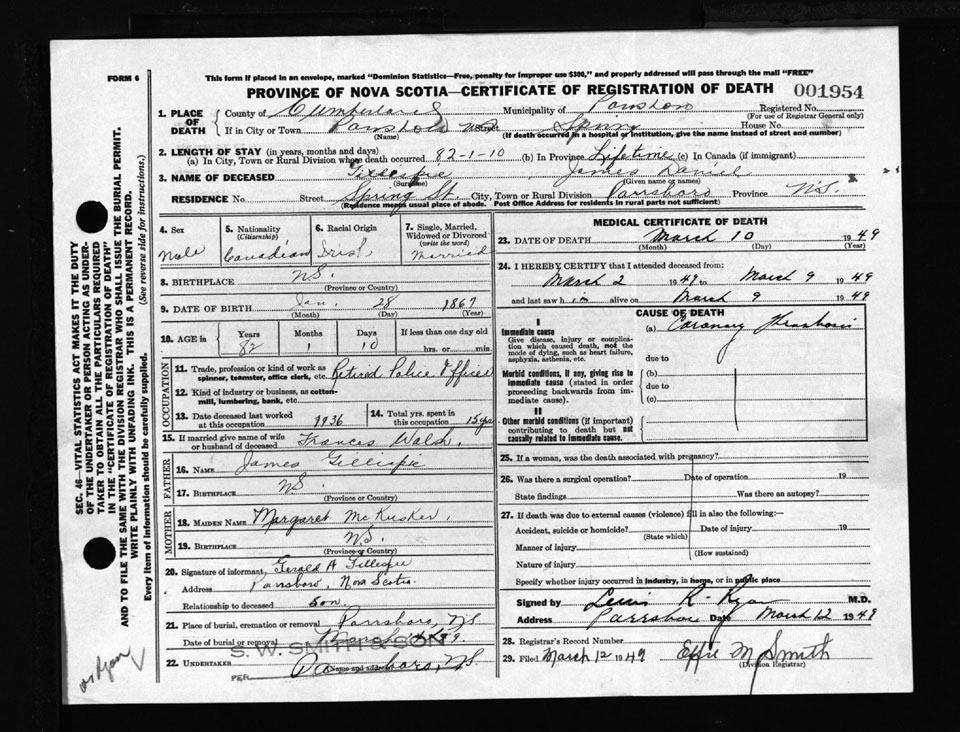 FORM 6
This form if placed in an envelope, marked "Dominion Statistics—Free, penalty for improper use $300," and properly addressed will pass through the mail "FREE"
PROVINCE OF NOVA SCOTIA—CERTIFICATE OF REGISTRATION OF DEATH 001954
1. PLACE OF DEATH
County of Cumberland Municipality of Parrsboro Registered No.
(For use of Registrar General only)
If in City or Town Parrsboro NS Street Spring House No.
(Name) (If death occurred in a hospital or institution, give the name instead of street and number)
2. LENGTH OF STAY (in years, months and days)
(a) In City, Town or Rural Division where death occurred 82-1-10 (b) In Province Lifetime (c) In Canada (if immigrant)
3. NAME OF DECEASED Gillespie James Daniel
(Surname) (Given name or names)
RESIDENCE No. Street Spring St. City, Town or Rural Division Parrsboro Province N.S.
(Residence means usual place of abode. Post Office Address for residents in rural parts not sufficient)
4. Sex
Male
5. Nationality
(Citizenship)
Canadian
6. Racial Origin
Irish
7. Single, Married, Widowed or Divorced
(write the word)
Married
8. BIRTHPLACE N.S.
(Province or Country)
9. DATE OF BIRTH Jan. 28 1867
(Month) (Day) (Year)
10. AGE in
Years Months Days If less than one day old
82 1 10 hrs. or min.
OCCUPATION
11. Trade, profession or kind of work as spinner, teamster, office clerk, etc. Retired Police Officer
12. Kind of industry or business, as cotton-mill, lumbering, bank, etc.
13. Date deceased last worked at this occupation 1936
14. Total yrs. spent in this occupation 15 yrs
15. If married give name of wife or husband of deceased Frances Walsh.
FATHER
16. NAME James Gillespie
17. BIRTHPLACE N.S.
(Province or Country)
MOTHER
18. MAIDEN NAME Margaret McKusker
19. BIRTHPLACE N.S.
(Province or Country)
20. Signature of informant Gerald A Gillespie
Address Parrsboro, Nova Scotia.
Relationship to deceased son.
21. Place of burial, cremation or removal Parrsboro, N.S.
Date of burial or removal March
S. W. SMITH & SON
22. UNDERTAKER
(Name and address)
PER
MEDICAL CERTIFICATE OF DEATH
23. DATE OF DEATH March 10 1949
(Month) (Day) (Year)
24. I HEREBY CERTIFY that I attended deceased from:
March 2 1949 to March 9 1949
and last saw him alive on March 9 1949
CAUSE OF DEATH
I
Immediate cause
Give disease, injury or complication which caused death, not the mode of dying, such as heart failure, asphyxia, asthenia, etc.
(a) Coronary Thrombosis
due to
Morbid conditions, if any, giving rise to immediate cause (stated in order proceeding backwards from immediate cause).
(b)
due to
(c)
II
Other morbid conditions (if important) contributing to death but not causally related to immediate cause.
25. If a woman, was the death associated with pregnancy?
26. Was there a surgical operation? Date of operation 19
State findings Was there an autopsy?
27. If death was due to external causes (violence) fill in also the following:—
Accident, suicide or homicide? Date of injury 19
(State which)
Manner of injury
(How sustained)
Nature of injury
Specify whether injury occurred in industry, in home, or in public place
Signed by R. Ryan M.D.
Address Parrsboro Date March 12 1949
28. Registrar's Record Number
29. Filed March 12 1949 Effie M Smith
(Division Registrar)
SEC. 46—VITAL STATISTICS ACT MAKES IT THE DUTY
OF THE UNDERTAKER OR PERSON ACTING AS UNDER-
TAKER TO OBTAIN ALL THE PARTICULARS REQUIRED
IN THE "CERTIFICATE OF REGISTRATION OF DEATH"
AND TO FILE THE SAME WITH THE DIVISION REGISTRAR WHO SHALL ISSUE THE BURIAL PERMIT.
WRITE PLAINLY WITH UNFADING INK. THIS IS A PERMANENT RECORD.
Every item of information should be carefully supplied. (See reverse side for instructions.)